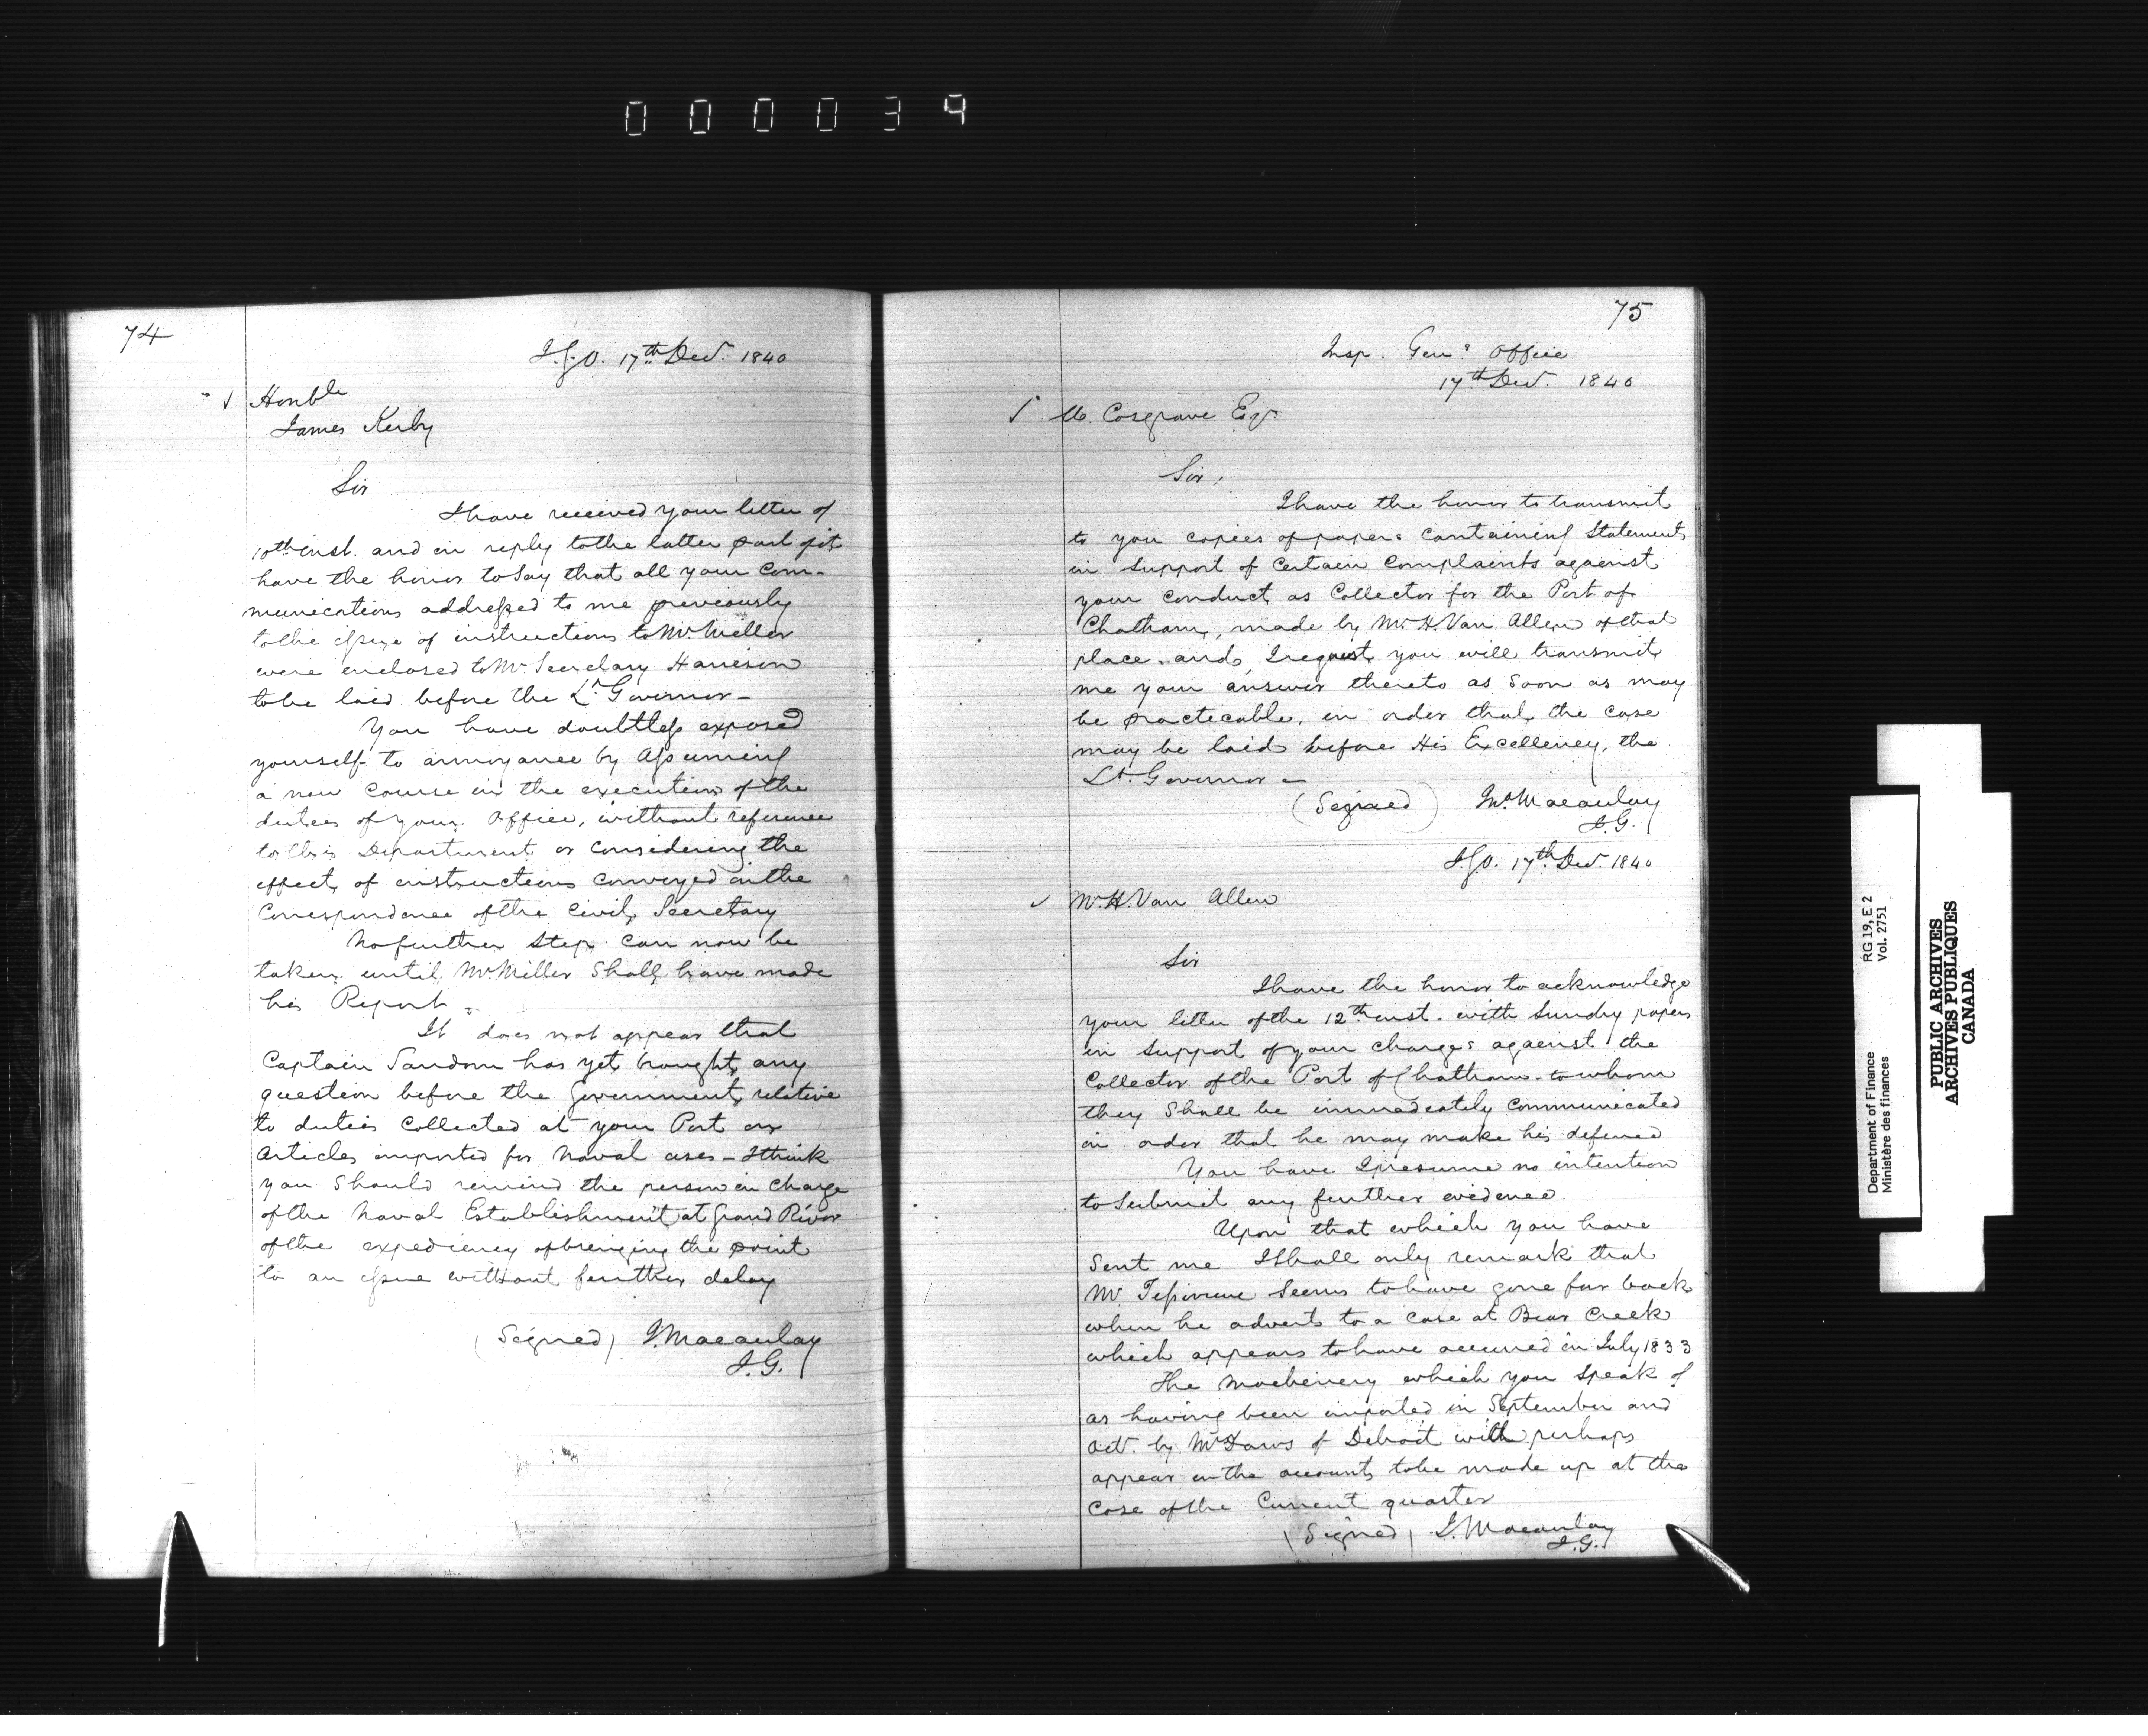 000039
74
I.G.O. 17th Decr. 1840
Honble
James Kerby
Sir
I have received your letter of
10th inst. and in reply to the latter part of it
have the honor to Say that all your Com-
munications addressed to me previously
to the issue of instructions to Mr. Miller
were enclosed to Mr. Secretary Harrison
to be laid before the Lt. Governor -
You have doubtless exposed
yourself to annoyance by Assuming
a new Course in the execution of the
duties of your Office, without reference
to this Department or Considering the
effect of instructions Conveyed in the
Correspondence of the Civil Secretary
No further Step can now be
taken until Mr. Miller Shall have made
his Report -
It does not appear that
Captain Sandom has yet brought any
question before the Government, relative
to duties Collected at your Port on
Articles imported for Naval uses - I think
you Should remind the person in Charge
of the Naval Establishment at Grand River
of the expediency of bringing the point
to an issue without further delay
(Signed) J. Macaulay
I.G.
75
Insp. Genl's Office
17th Decr. 1840
Cosgrave Esqr.
Sir,
I have the honor to transmit
to you copies of papers Containing Statements
in Support of Certain Complaints against
your Conduct as Collector for the Port of
Chatham, made by Mr. H. Van Allen of that
place - and I request you will transmit
me your answer thereto as Soon as may
be practecable, in order that the case
may be laid before His Excellency, the
Lt. Governor -
(Signed) Jno. Macaulay
I.G.
I.G.O. 17th Decr. 1840
Mr. H. Van Allen
Sir
I have the honor to acknowledge
your letter of the 12th inst. with Sundry papers
in Support of your Charges against the
Collector of the Port of Chatham - to whom
they Shall be immediately Communicated
in order that he may make his defence
You have I presume no intention
to Submit any further evidence.
Upon that which you have
Sent me I Shall only remark that
Mr. Seems to have gone far back
when he adverts to a Case at Bear Creek
which appears to have occured in July 1833
The Machinery which you Speak of
as having been imported in September and
Octr. by of Detroit will perhaps
appear in the accounts to be made up at the
Cose of the Current quarter
(Signed) J. Macaulay
I.G.
Department of Finance RG 19, E 2
Ministère des finances Vol. 2751
PUBLIC ARCHIVES
ARCHIVES PUBLIQUES
CANADA